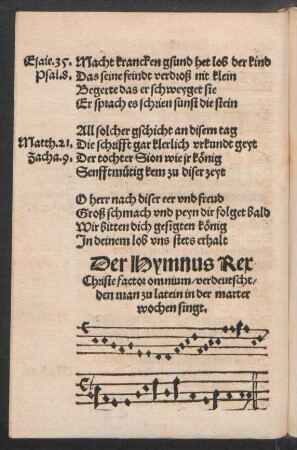 Esaie.35. Macht krancken gsund het lob der kind
Psal.8. Das seine feindt verdroß nit klein
Begerte das er schweyget sie
Er sprach es schrien sunst die stein
All solcher gschicht an disem tag
Matth.21. Die schrifft gar klerlich vrkundt geyt
Zacha.9. Der tochter Sion wie jr könig
Senfftmütig kem zu diser zeyt
O herr nach diser eer vnd freud
Groß schmach vnd peyn dir folget bald
Wir bitten dich gesigten könig
In deinem lob vns stets erhalt
Der Hymnus Rex
Christe factor omnium/verdeutscht/
den man zu latein in der marter
wochen singt.